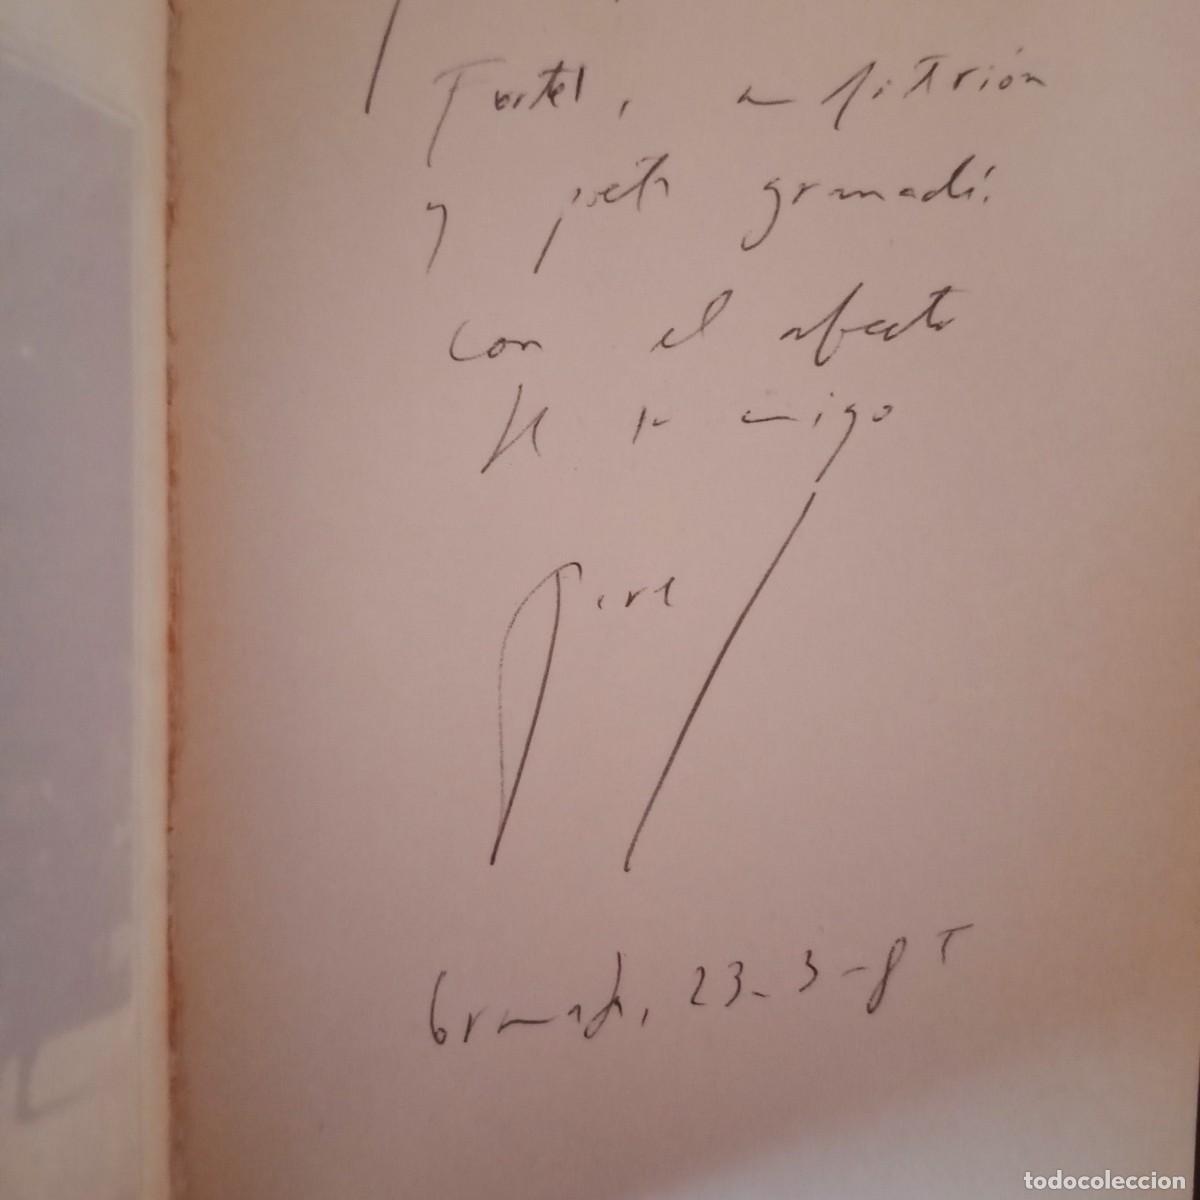 Fortes, anfitrión
y poeta granadí,
con el afecto
de tu amigo
Granada, 23-3-85
todocoleccion